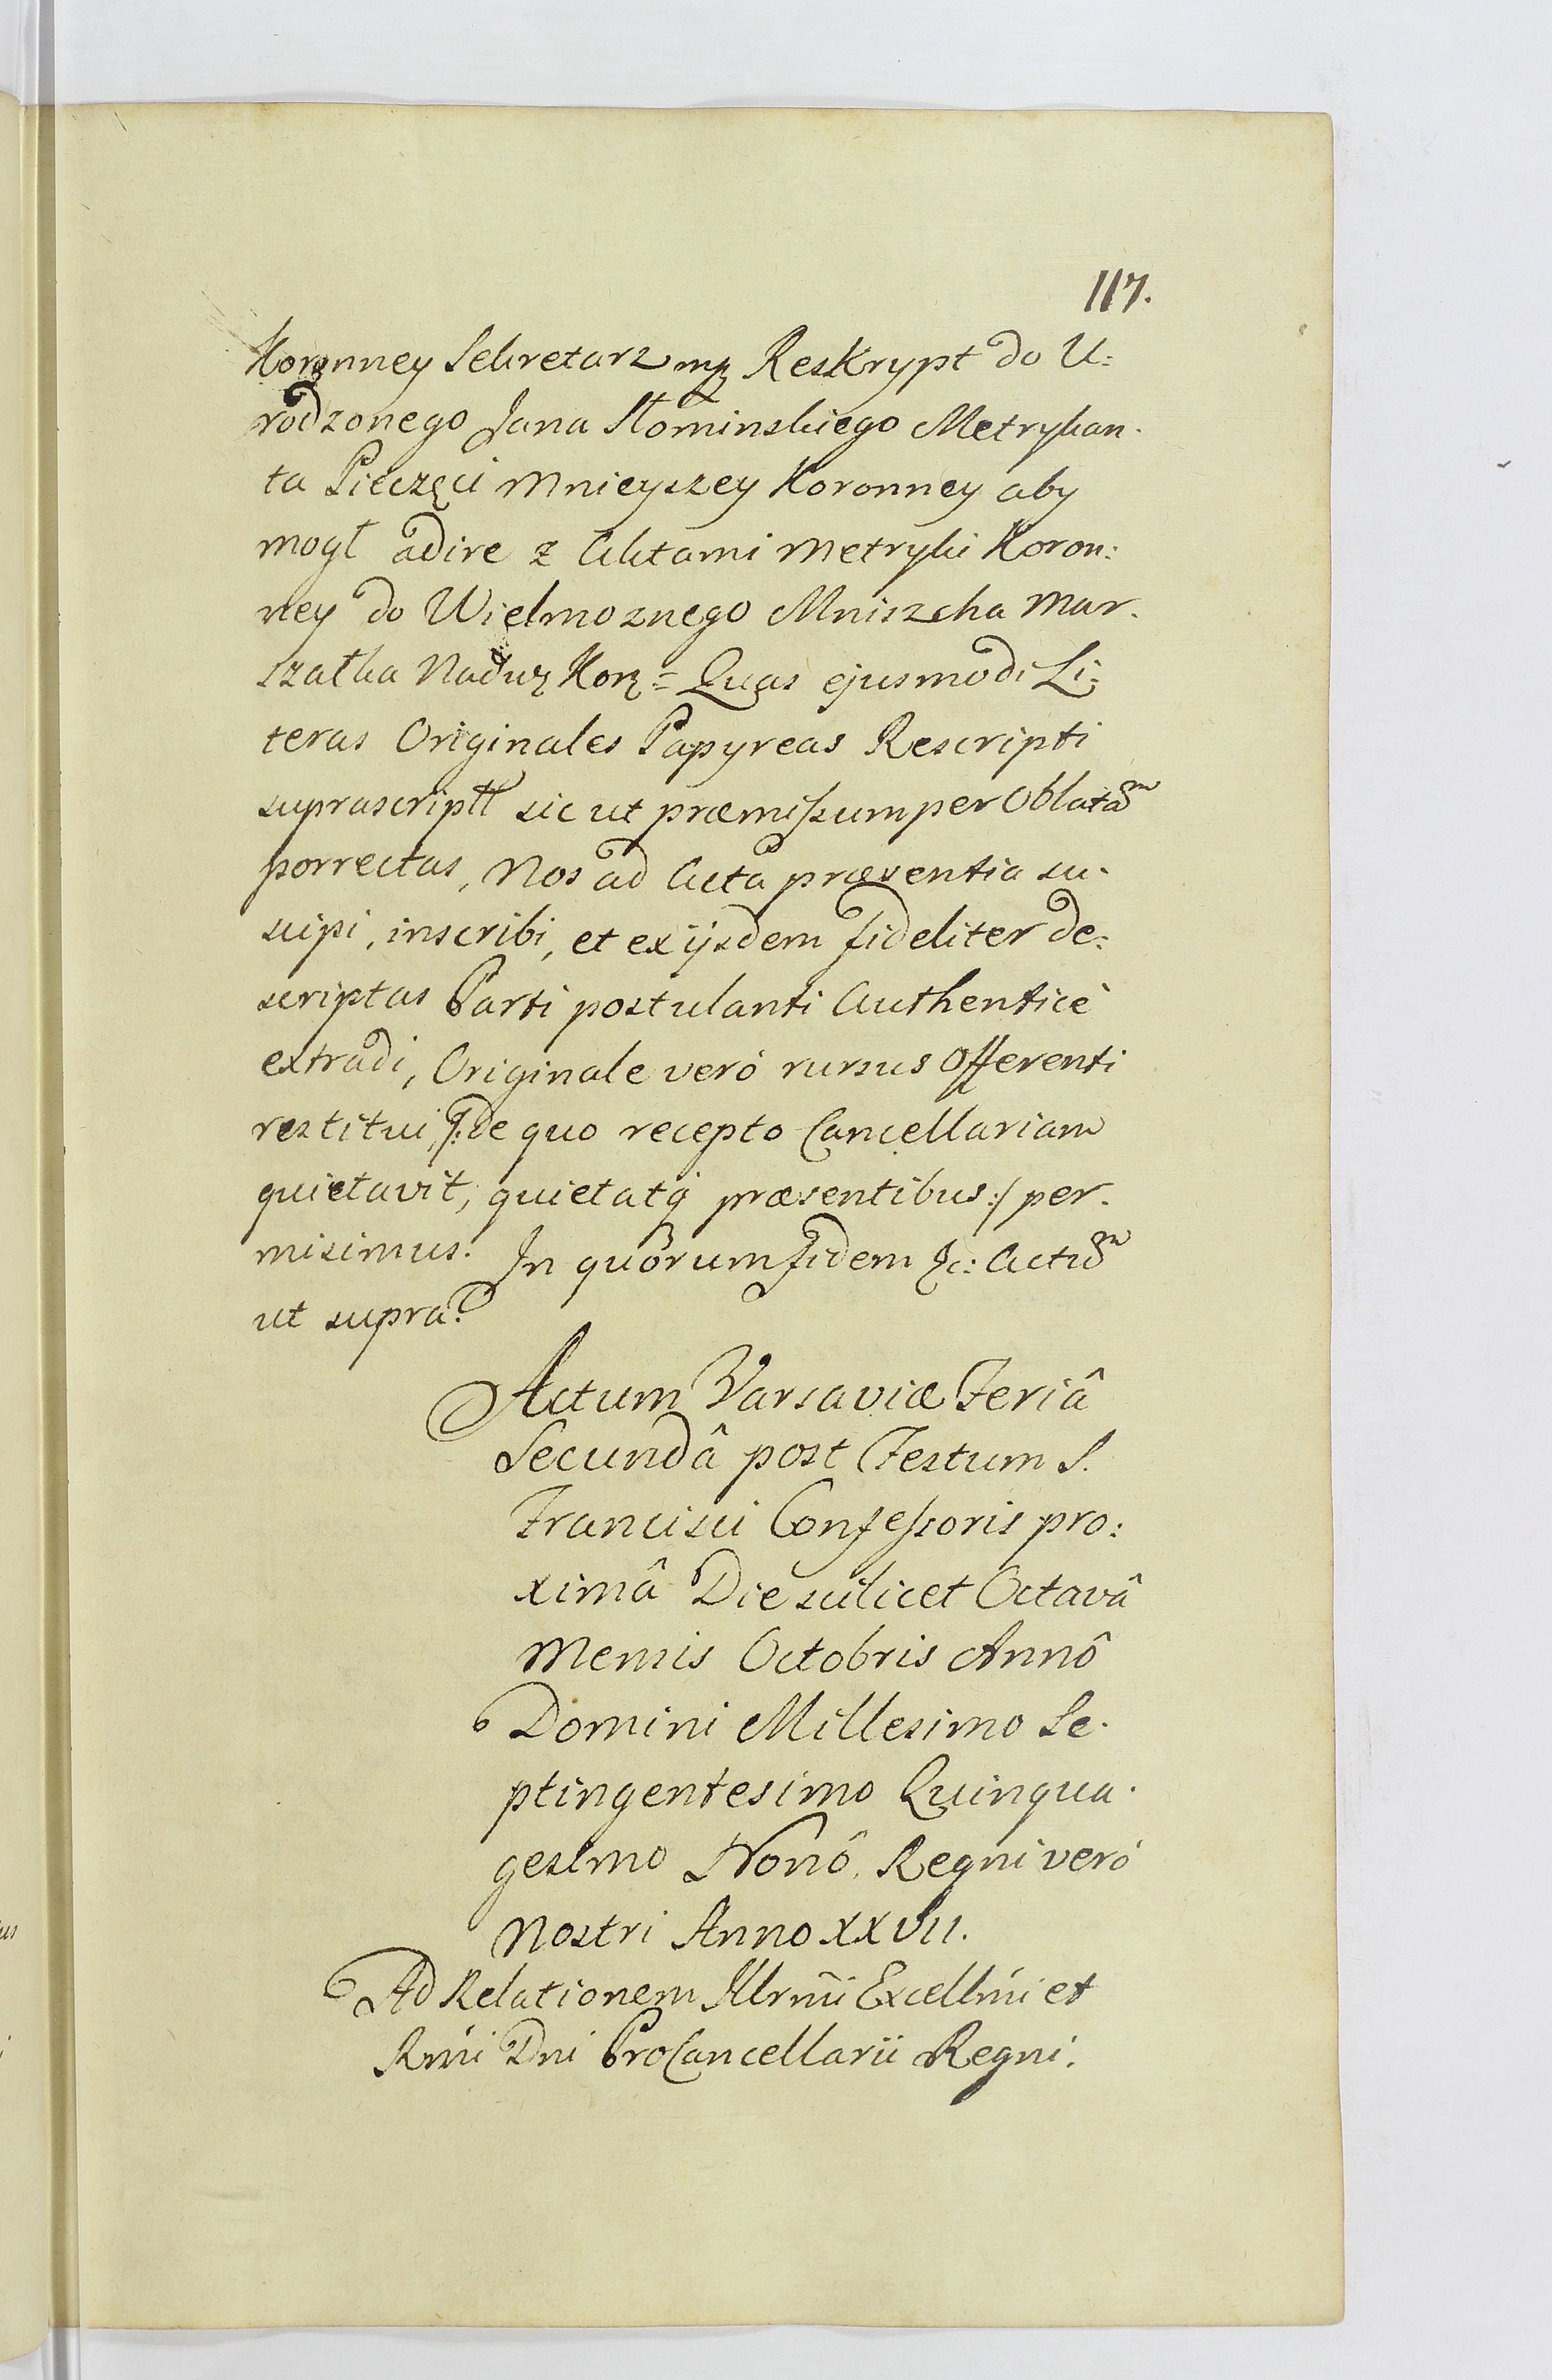 117.
Koronney Sekretarz mp Reskrypt do U:
rodzonego Jana Słominskiego Metrykan.
ta Pieczęci Mnieyszey Koronney aby
mogł adire z Aktami Metryki Koron:
ney do Wielmoznego Mniszcha Mar.
szałka Nadw Kor = Quas ejusmodi Li:
teras Originales Papyreas Rescripti
suprascripti sic ut præmissum per Oblatam
porrectas, Nos ad Acta præsentia su.
scipi, inscribi, et ex ijsdem fideliter de:
scriptas Parti postulanti Authenticè
extradi, Originale verò rursus Offerenti
restitui, /: de quo recepto Cancellariam
quietavit, quietatq præsentibus :/ per.
misimus. In quorum fidem &c: Actum
ut supra.
Actum Varsaviæ Feriâ
Secundâ post Festum S.
Francisci Confessoris pro:
ximâ Die scilicet Octavâ
Mensis Octobris Annô
Domini Millesimo Se.
ptingentesimo Quinqua.
gesimo Nonô, Regni verò
Nostri Anno XXVII.
Ad Relationem Illrmi Excellmi et
Rmi Dni ProCancellarii Regni.